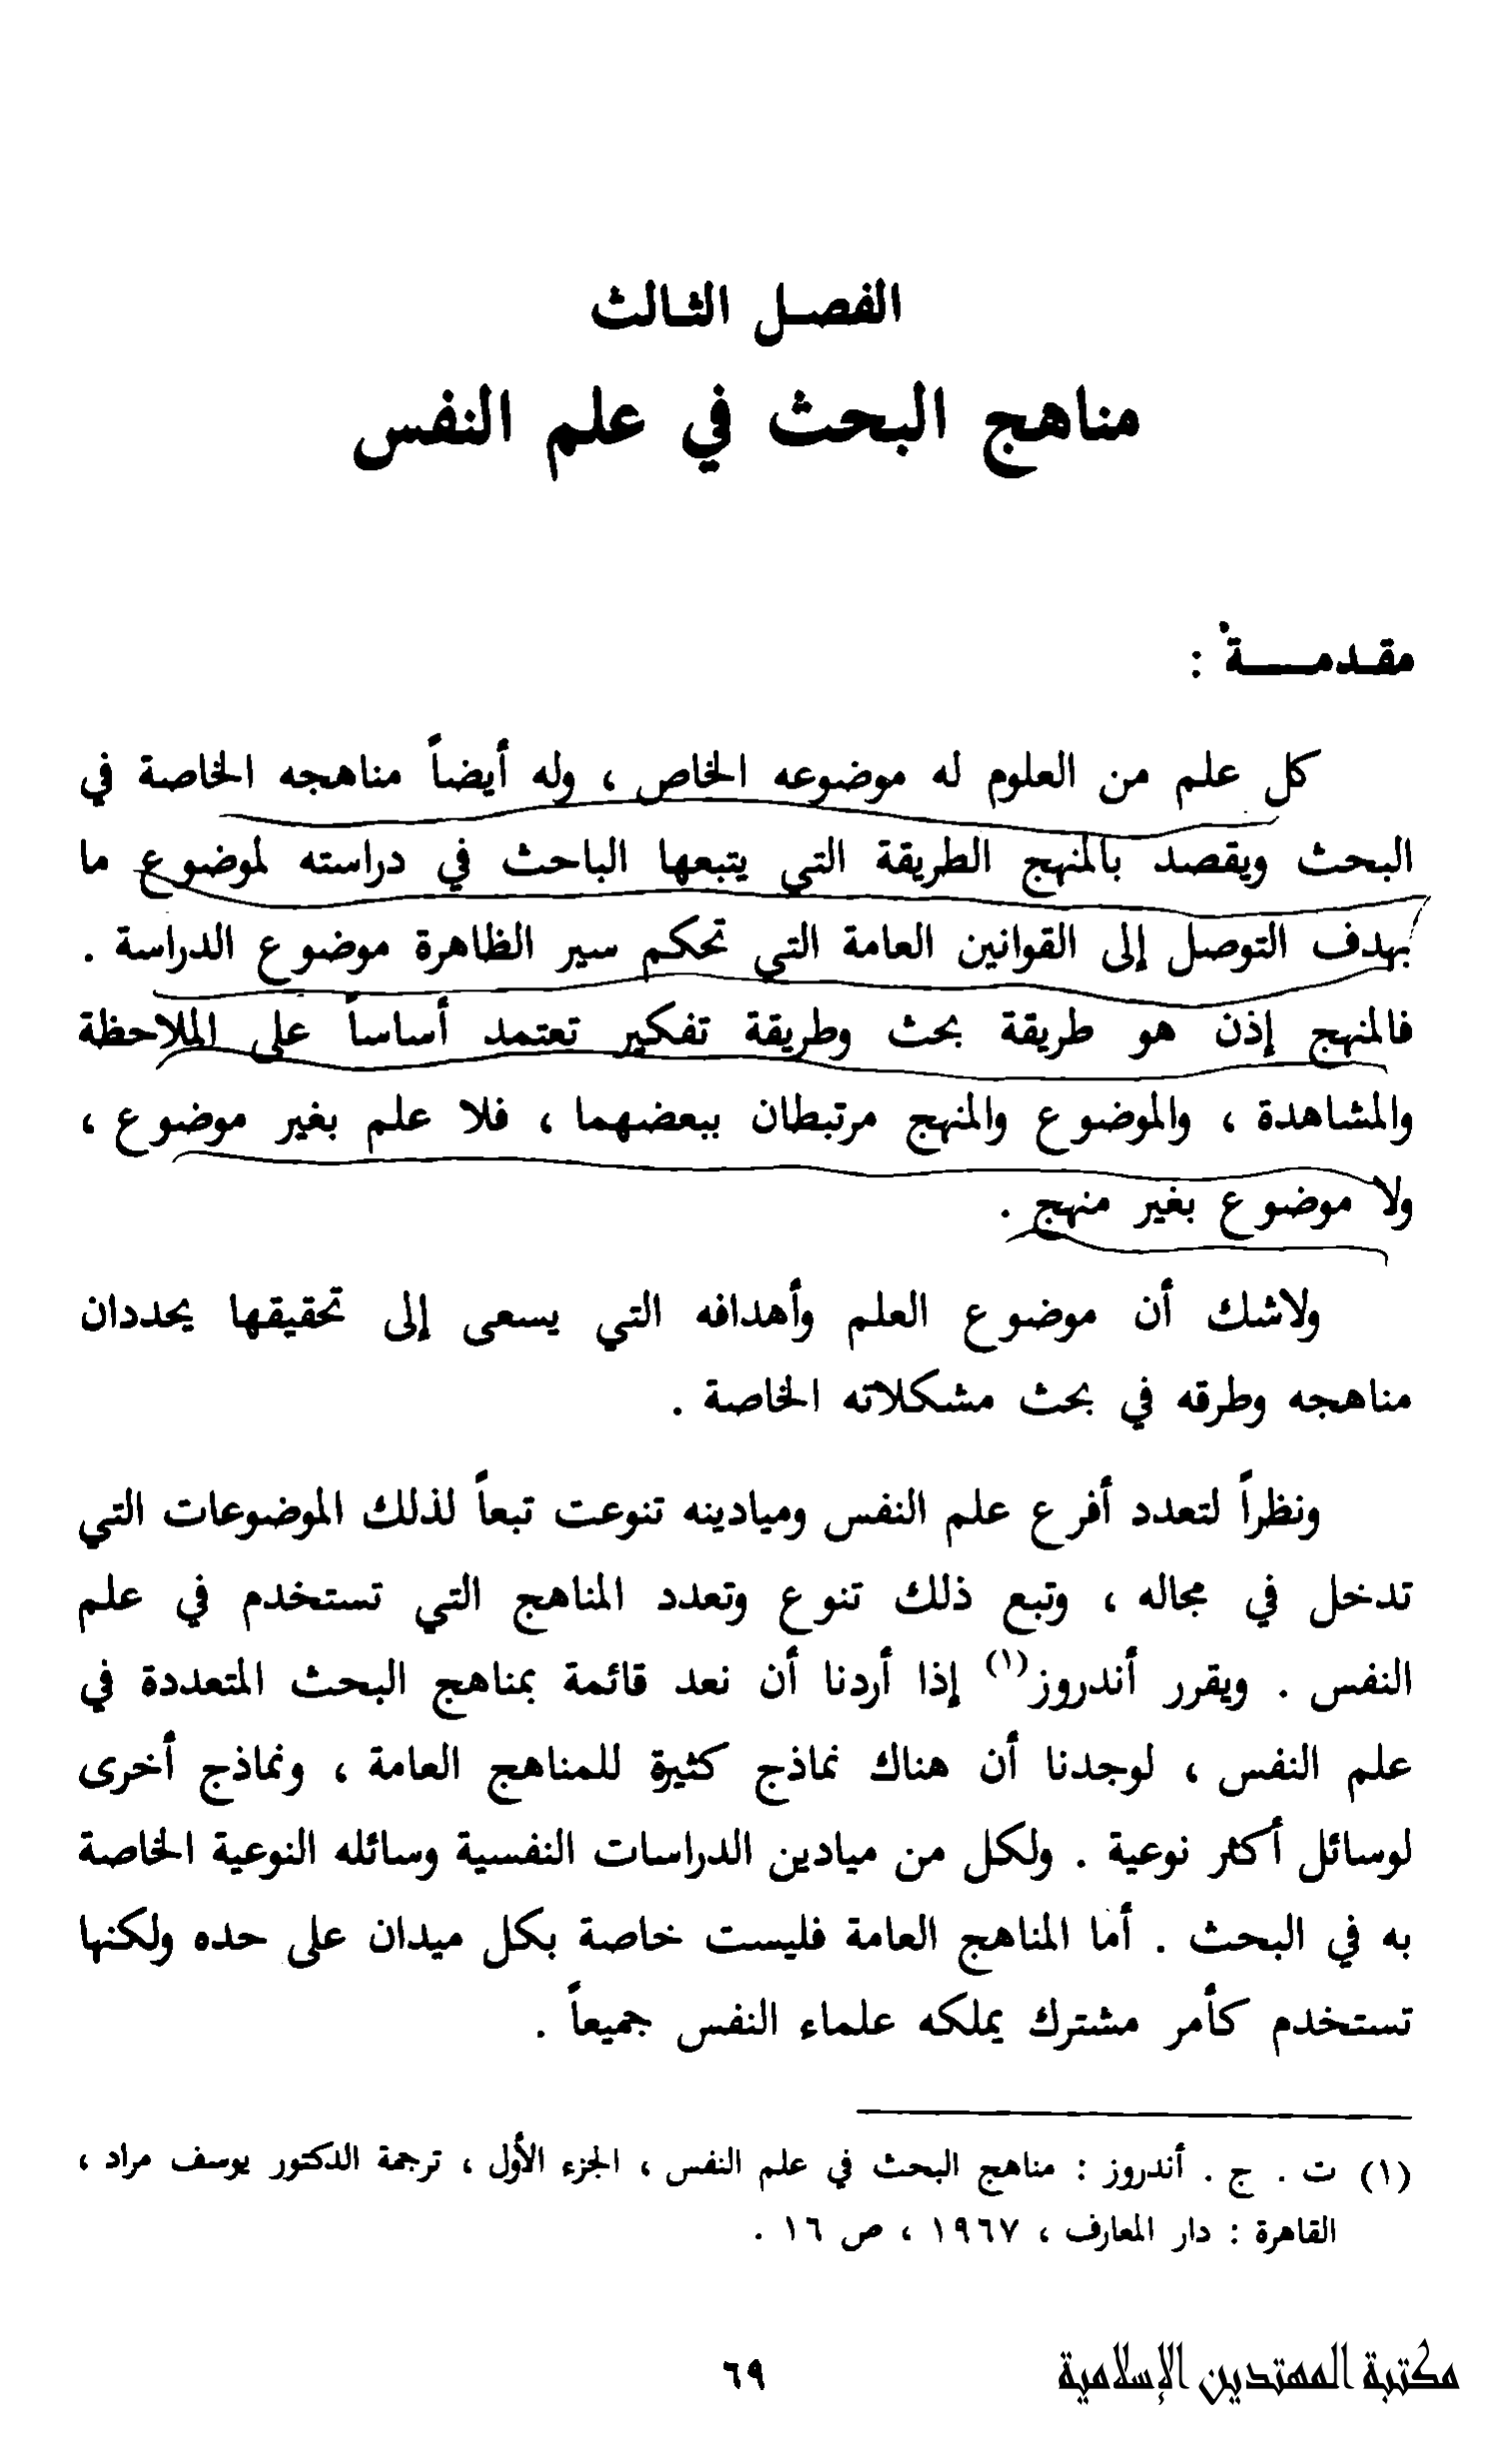 الفصل الثالث
مناهج البحث في علم النفس
مقدمة :
كل علم من العلوم له موضوعه الخاص ، وله أيضاً مناهجه الخاصة في
البحث ويقصد بالمنهج الطريقة التي يتبعها الباحث في دراسته لموضوع ما
بهدف التوصل إلى القوانين العامة التي تحكم سير الظاهرة موضوع الدراسة .
فالمنهج إذن هو طريقة بحث وطريقة تفكير تعتمد أساساً على الملاحظة
والمشاهدة ، والموضوع والمنهج مرتبطان ببعضهما ، فلا علم بغير موضوع ،
ولا موضوع بغير منهج .
ولاشك أن موضوع العلم وأهدافه التي يسعى إلى تحقيقها يحددان
مناهجه وطرقه في بحث مشكلاته الخاصة .
ونظراً لتعدد أفرع علم النفس وميادينه تنوعت تبعاً لذلك الموضوعات التي
تدخل في مجاله ، وتبع ذلك تنوع وتعدد المناهج التي تستخدم في علم
النفس . ويقرر أندروز(١) إذا أردنا أن نعد قائمة بمناهج البحث المتعددة في
علم النفس ، لوجدنا أن هناك نماذج كثيرة للمناهج العامة ، ونماذج أخرى
لوسائل أكثر نوعية . ولكل من ميادين الدراسات النفسية وسائله النوعية الخاصة
به في البحث . أما المناهج العامة فليست خاصة بكل ميدان على حده ولكنها
تستخدم كأمر مشترك يملكه علماء النفس جميعاً .
(١) ت . ج . أندروز : مناهج البحث في علم النفس ، الجزء الأول ، ترجمة الدكتور يوسف مراد ،
القاهرة : دار المعارف ، ١٩٦٧ ، ص ١٦ .
٦٩
مكتبة المهتدين الإسلامية